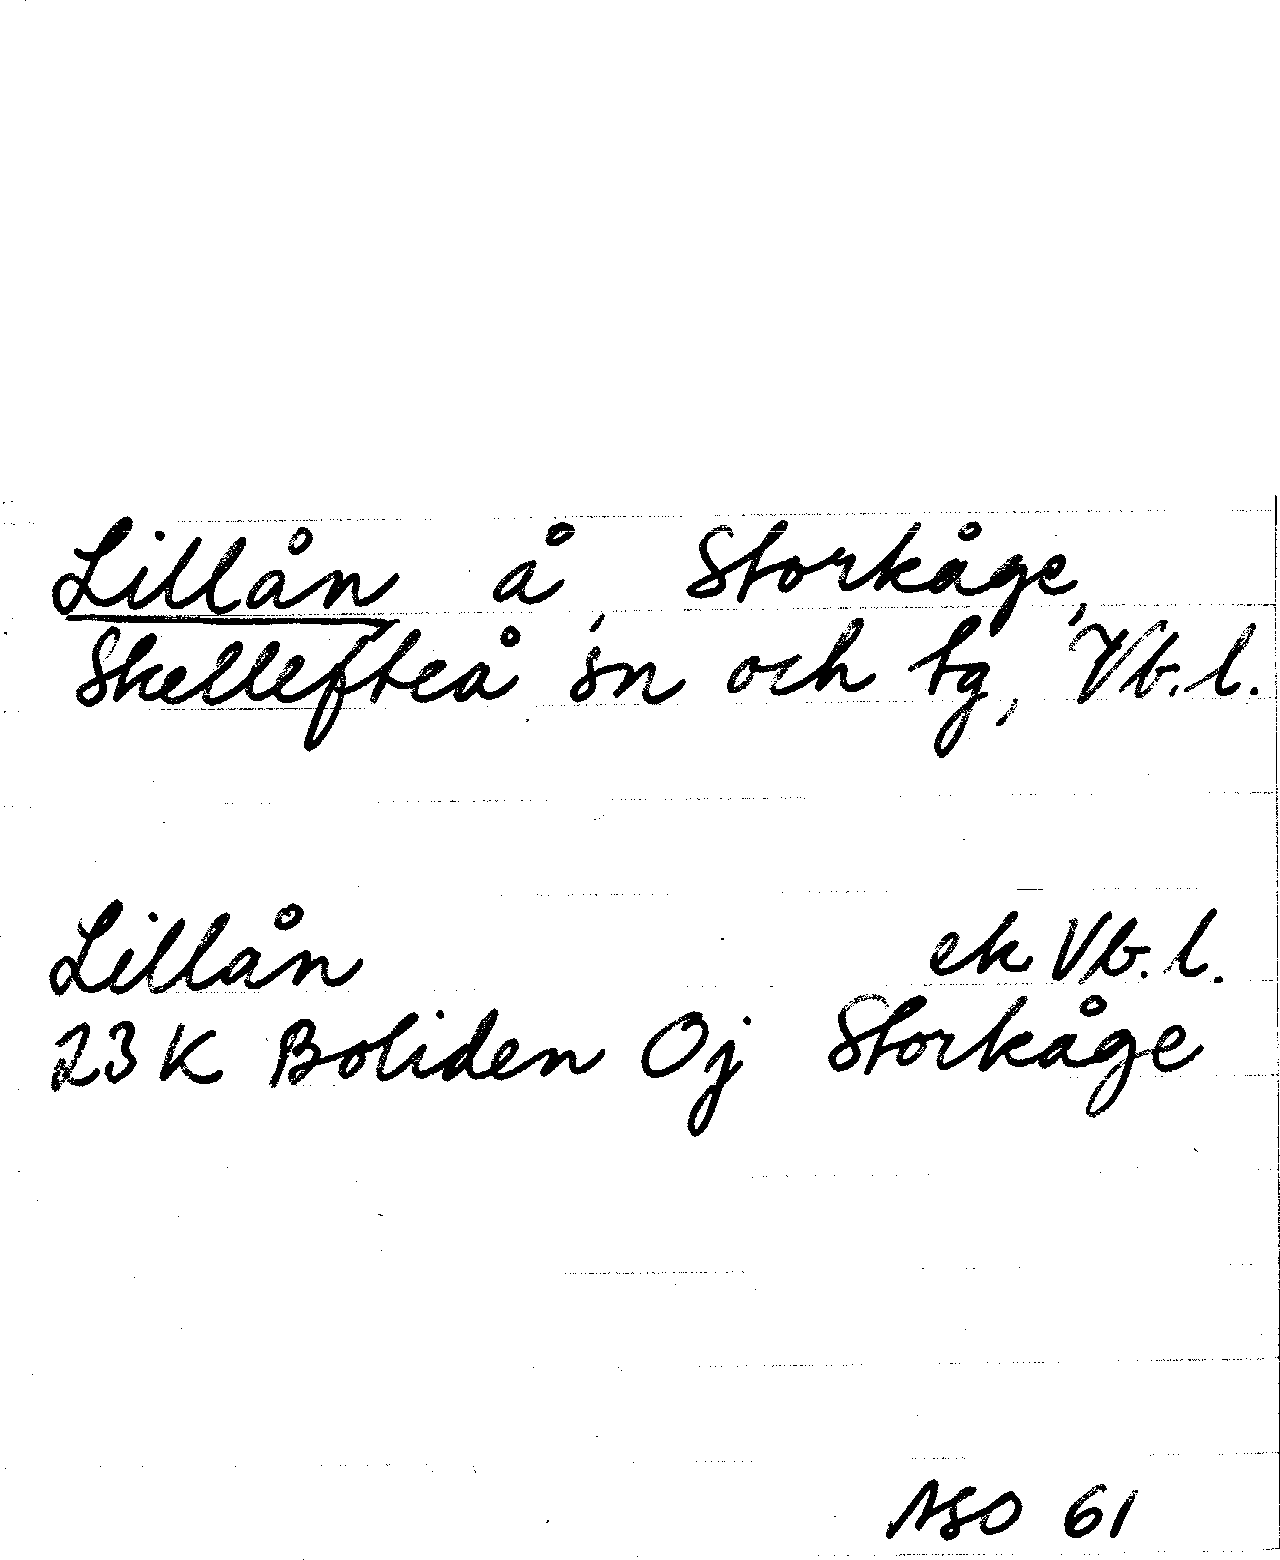 Lillån å, Storkåge,
Skellefteå sn och tg, Vb.l.
Lillån ek Vb.l.
23 K Boliden Oj Storkåge
ASO 61